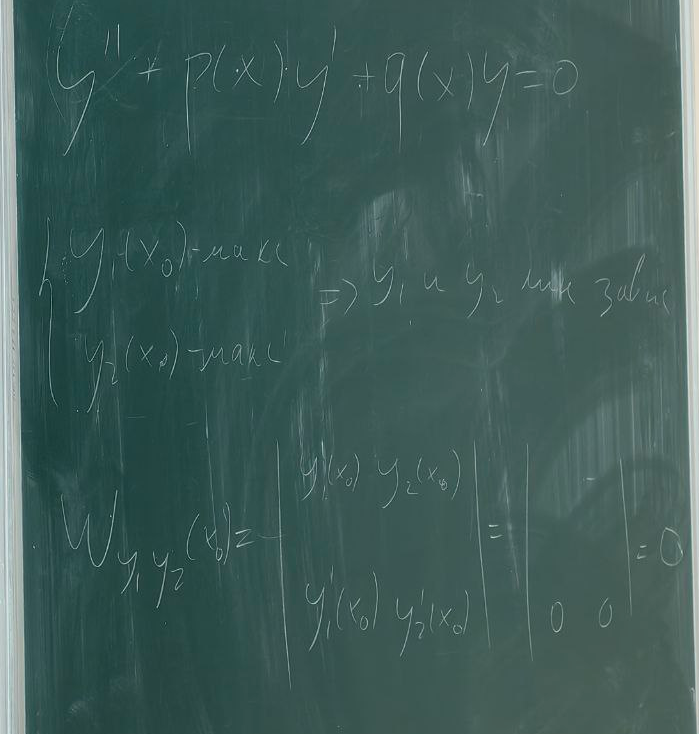 y'' + p(x) y' + q(x) y = 0
{ y₁(x₀) - макс
y₂(x₀) - макс
=> y₁ и y₂ лин завис
W y₁ y₂ (x₀) = | y₁(x₀) y₂(x₀) | = | - | = 0
| y₁'(x₀) y₂'(x₀) | | 0 0 |